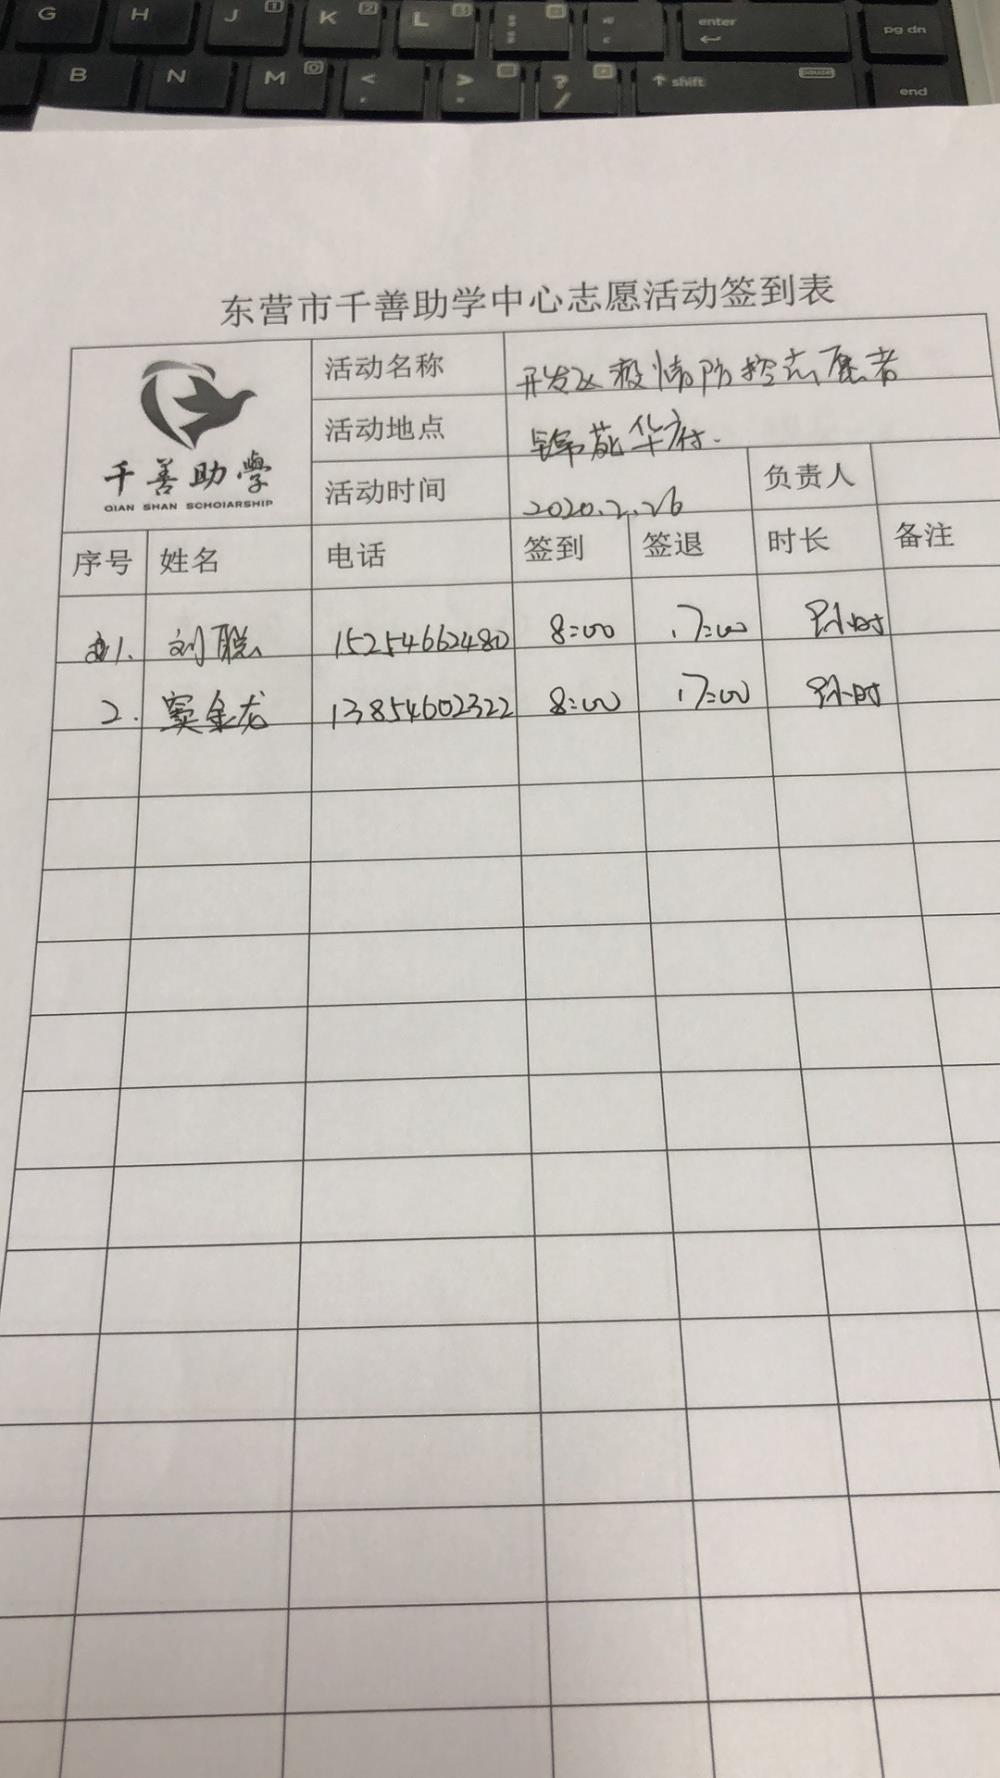 G H J K L enter pg dn
B N M < > ? / shift pause end
东营市千善助学中心志愿活动签到表
千善助學
QIAN SHAN SCHOIARSHIP
活动名称 开发区疫情防控志愿者
活动地点 锦苑华府.
活动时间 2020.2.26 负责人
序号 姓名 电话 签到 签退 时长 备注
1. 刘聪 15254662480 8:00 17:00 9小时
2. 窦金龙 13854602322 8:00 17:00 9小时